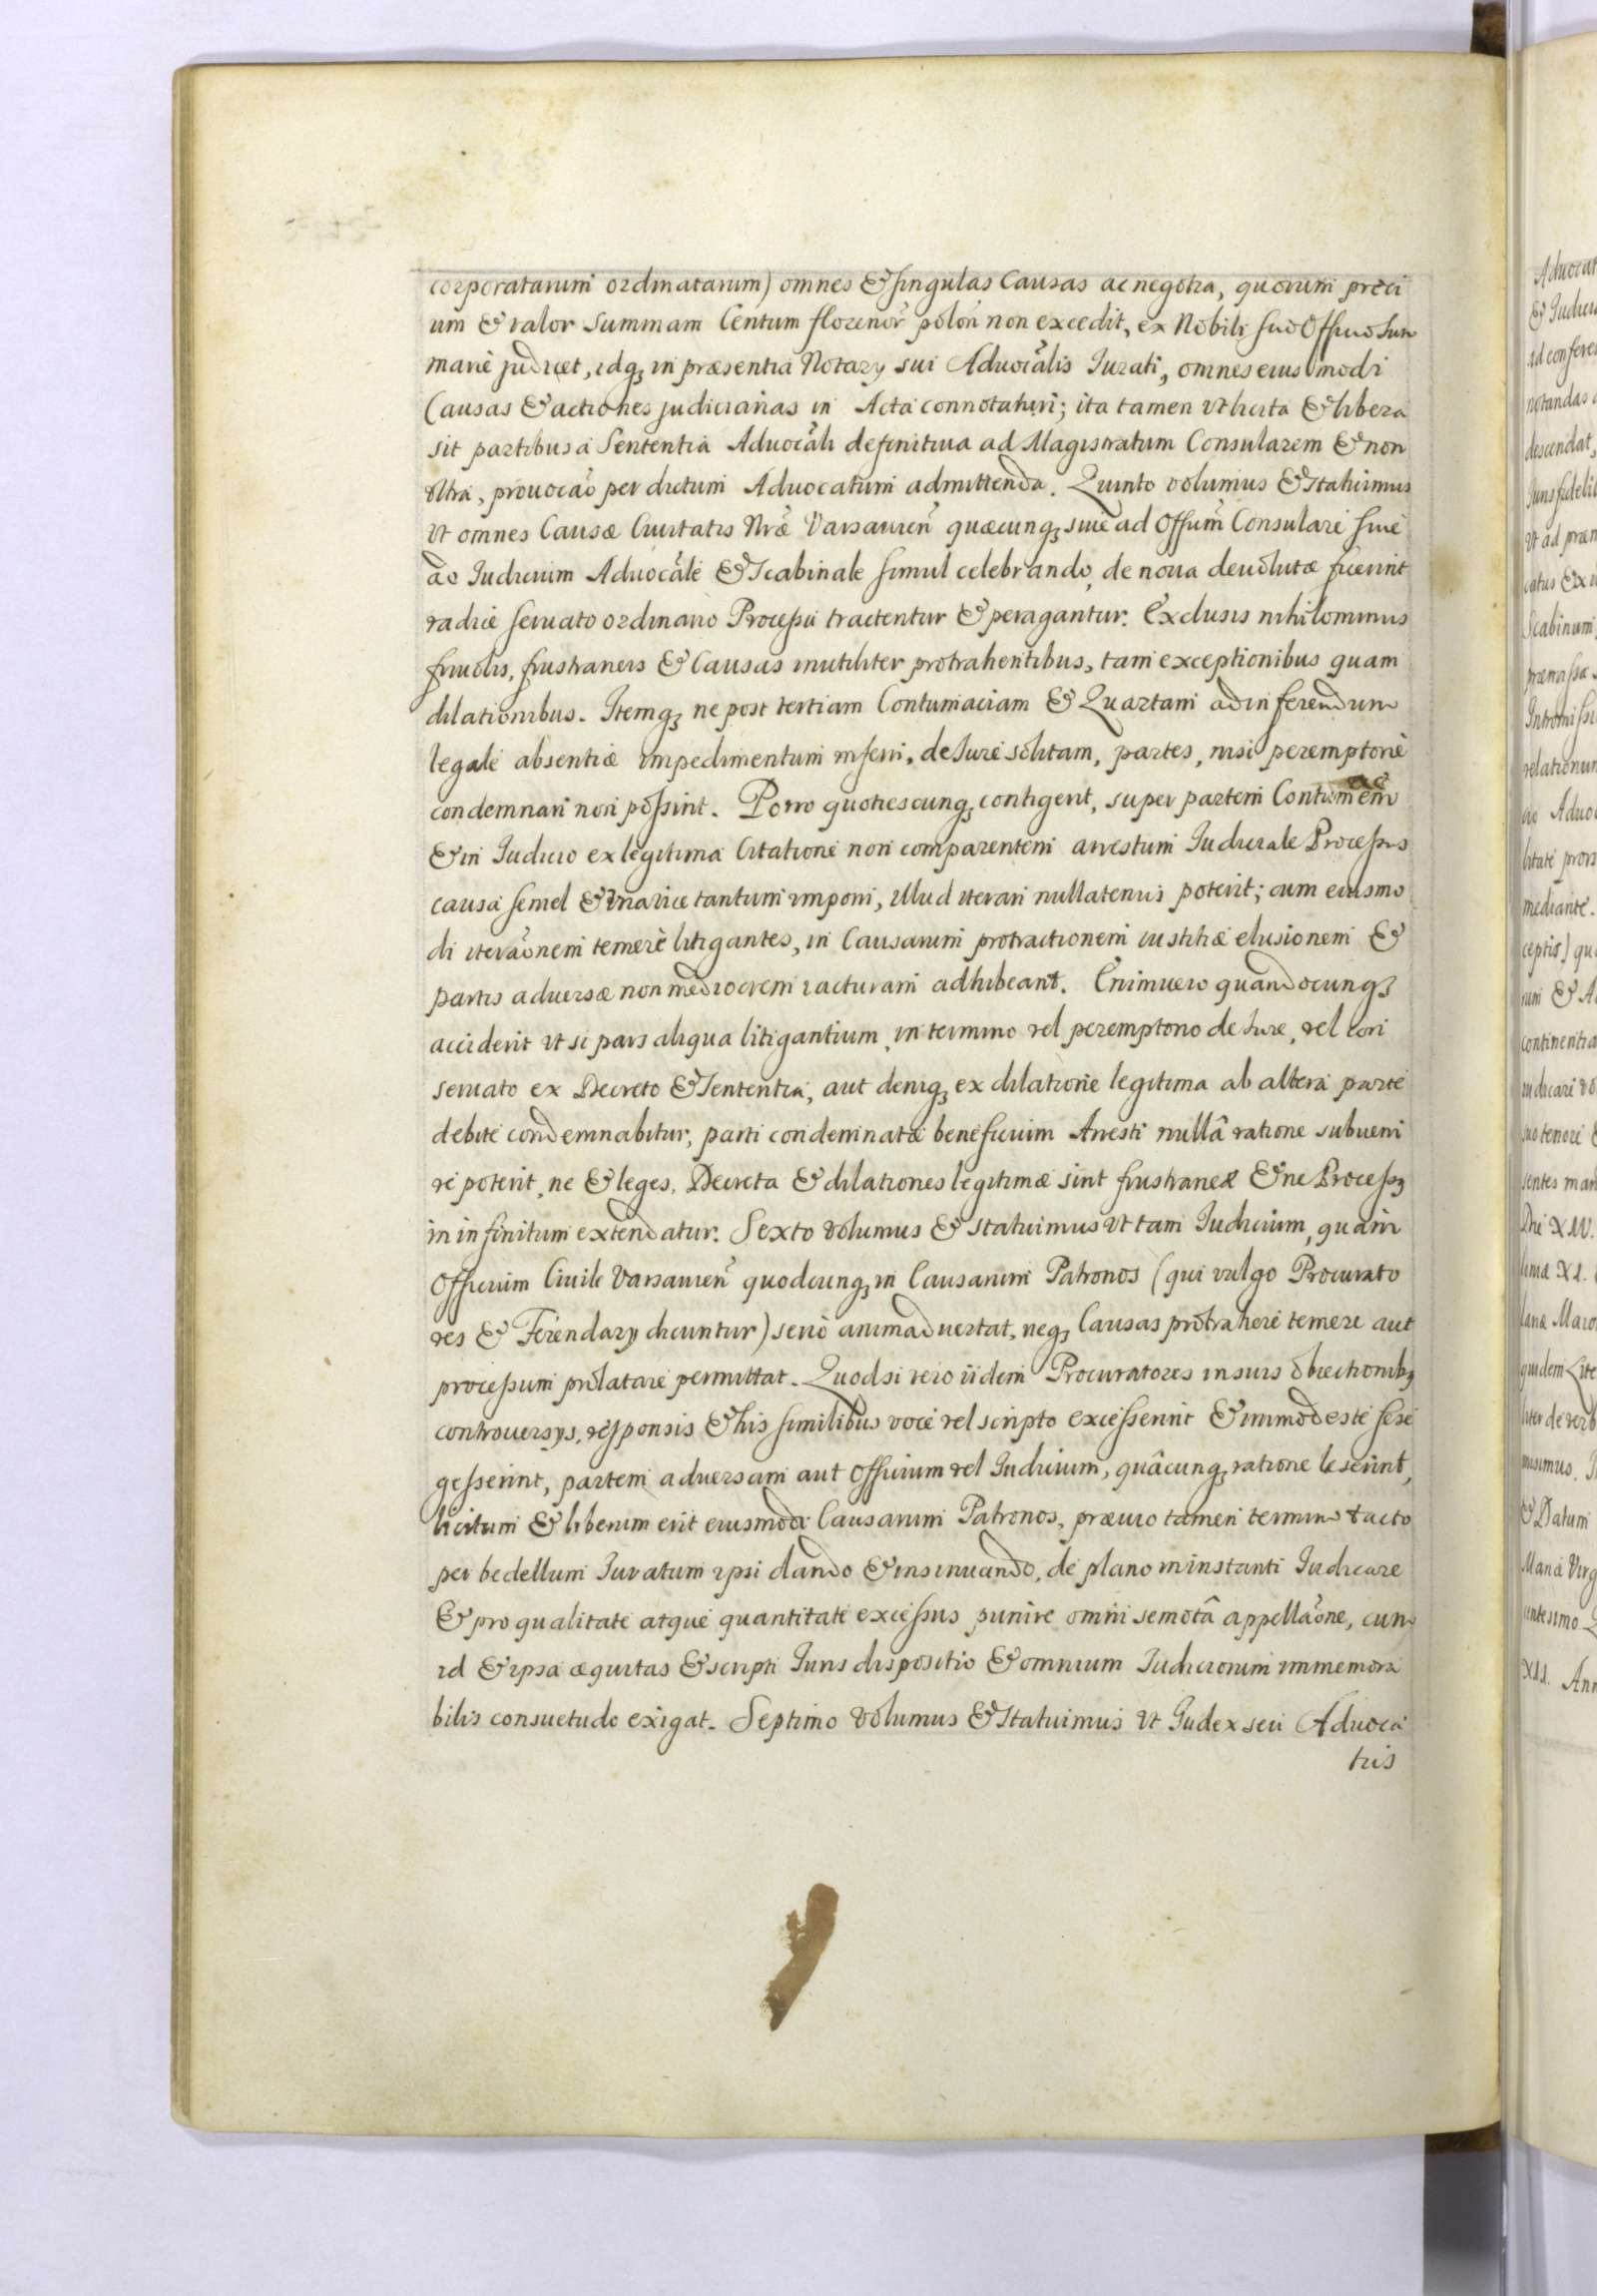 corporatarum ordinatarum) omnes & singulas Causas ac negotia, quorum preci
um & valor summam Centum florenor̃ polon̄ non excedit, ex Nobili suo Officio Sum
marie judicet, idq3 in præsentia Notarÿ sui Advocãlis Jurati, omnes eiusmodi
Causas & actiones judiciarias in Acta connotaturi; ita tamen ut licita & libera
sit partibus a Sententia Advocãli definitiua ad Magistratum Consularem & non
ultra, prouocaõ per dictum Advocatum admittenda. Quinto volumus & Statuimus
Ut omnes Causæ Ciuitatis Nr̃æ Varsauien̄ quæcunq3 siue ad Offum̃ Consulare siue
ad Iudicium Aduocãle & Scabinale simul celebrando, de noua deuolutæ fuerint
radice seruato ordinario Processu tractentur & peragantur. Exclusis nihilominus
friuolis, frustraneis & Causas inutiliter protrahentibus, tam exceptionibus quam
dilationibus. Itemq3 ne post tertiam Contumaciam & Quartam ad inferendum
legale absentiæ impedimentum inseri, de Jure solitam, partes, nisi peremptorie
condemnari non possint. Porro quotiescunq3 contigerit, super partem Contumacẽm
& in Judicio ex legitima Citatione non comparentem arrestum Iudiciale Processus
causa semel & vnauice tantum imponi, illud iterari nullatenus poterit; cum eiusmo
di iteraõnem temerè litigantes, in Causarum protractionem iustitiæ elusionem &
partis aduersæ non mediocrem iacturam adhibeant. Enimuero quandocunq3
acciderit ut si pars aliqua litigantium, in termino vel peremptorio de Iure, vel con
seruato ex Decreto & Sententia, aut deniq3 ex dilatione legitima ab altera parte
debite condemnabitur, parti condemnatæ beneficium Arresti nullâ ratione subueni
re poterit, ne & leges, Decreta & dilationes legitimæ sint frustraneæ & ne Process3
in infinitum extendatur. Sexto volumus & statuimus Ut tam Judicium, quam
Officium Ciuile Varsauien̄ quodcunq3 in Causarum Patronos (qui vulgo Procurato
res & Ferendarÿ dicuntur) seriò animaduertat, neq3 Causas protrahere temere aut
processum prolatare permittat. Quodsi vero iidem Procuratores in suis obiectionib3
controuersÿs, responsis & his similibus voce vel scripto excesserint & immodeste sese
gesserint, partem aduersam aut Officium vel Judicium, quâcunq3 ratione leserint,
licitum & liberum erit eiusmodi Causarum Patronos, præuio tamen termino tacto
per bedellum Iuratum ipsi dando & insinuando, de plano in instanti Judicare
& pro qualitate atque quantitate excessus punire omni semotâ appellaõne, cum
id & ipsa æquitas & scripti Juris dispositio & omnium Judiciorum immemora
bilis consuetudo exigat. Septimo volumus & Statuimus Ut Judex seu Aduoca
tus